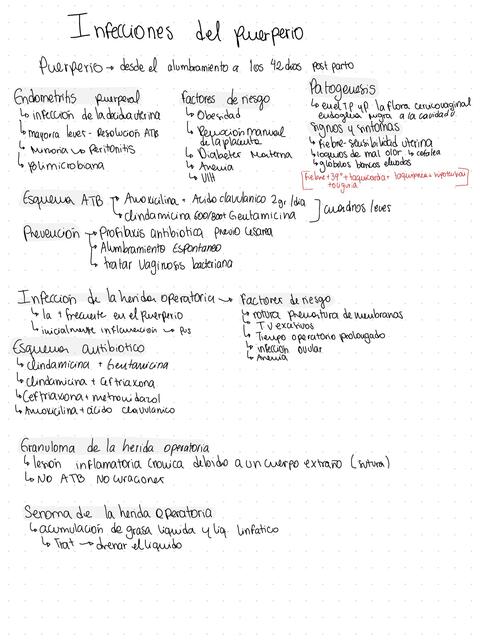 Infecciones del puerperio
Puerperio → desde el alumbramiento a los 42 dias post parto
Endometritis puerperal
↳ infección de la decidua uterina
↳ mayoria leves - Resolución ATB
↳ Minoria ↳ Peritonitis
↳ polimicrobiana
Factores de riesgo
↳ Obesidad
↳ Remoción manual
de la placenta
↳ Diabetes Materna
↳ Anemia
↳ VIH
Patogenesis
↳ en el TP y P la flora cervicovaginal
endogena migra a la cavidad
Signos y sintomas
↳ fiebre - sensibilidad uterina
↳ loquios de mal olor ↳ cefalea
↳ globulos blancos elevados
[Fiebre + 39° + taquicardia + taquipnea + hipotension
+ oliguria]
Esquema ATB → Amoxicilina + Acido clavulanico 2gr/dia
↳ clindamicina 600/800 + Gentamicina
] cuadros leves
Prevención → Profilaxis antibiotica previo cesarea
↳ Alumbramiento Espontaneo
↳ tratar vaginosis bacteriana
Infección de la herida operatoria → Factores de riesgo
↳ la + frecuente en el puerperio
↳ inicialmente inflamación → pus
↳ rotura prematura de membranas
↳ TV excesivos
↳ Tiempo operatorio prolongado
↳ infección ovular
↳ Anemia
Esquema antibiotico
↳ clindamicina + Gentamicina
↳ clindamicina + Ceftriaxona
↳ Ceftriaxona + metronidazol
↳ Amoxicilina + ácido clavulanico
Granuloma de la herida operatoria
↳ lesión inflamatoria cronica debido a un cuerpo extraño (sutura)
↳ NO ATB NO curaciones
Seroma de la herida operatoria
↳ acumulación de grasa liquida y liq linfatico
↳ Trat → drenar el liquido